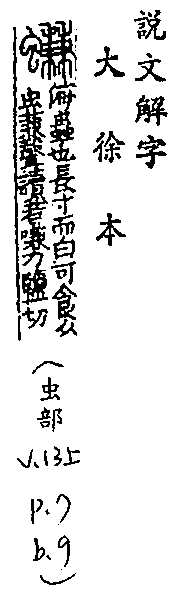 説文解字
大徐本
螊
海蟲也長寸而白可食从
虫兼聲讀若嗛力鹽切
（虫部
V.13上
p.7
b.9）